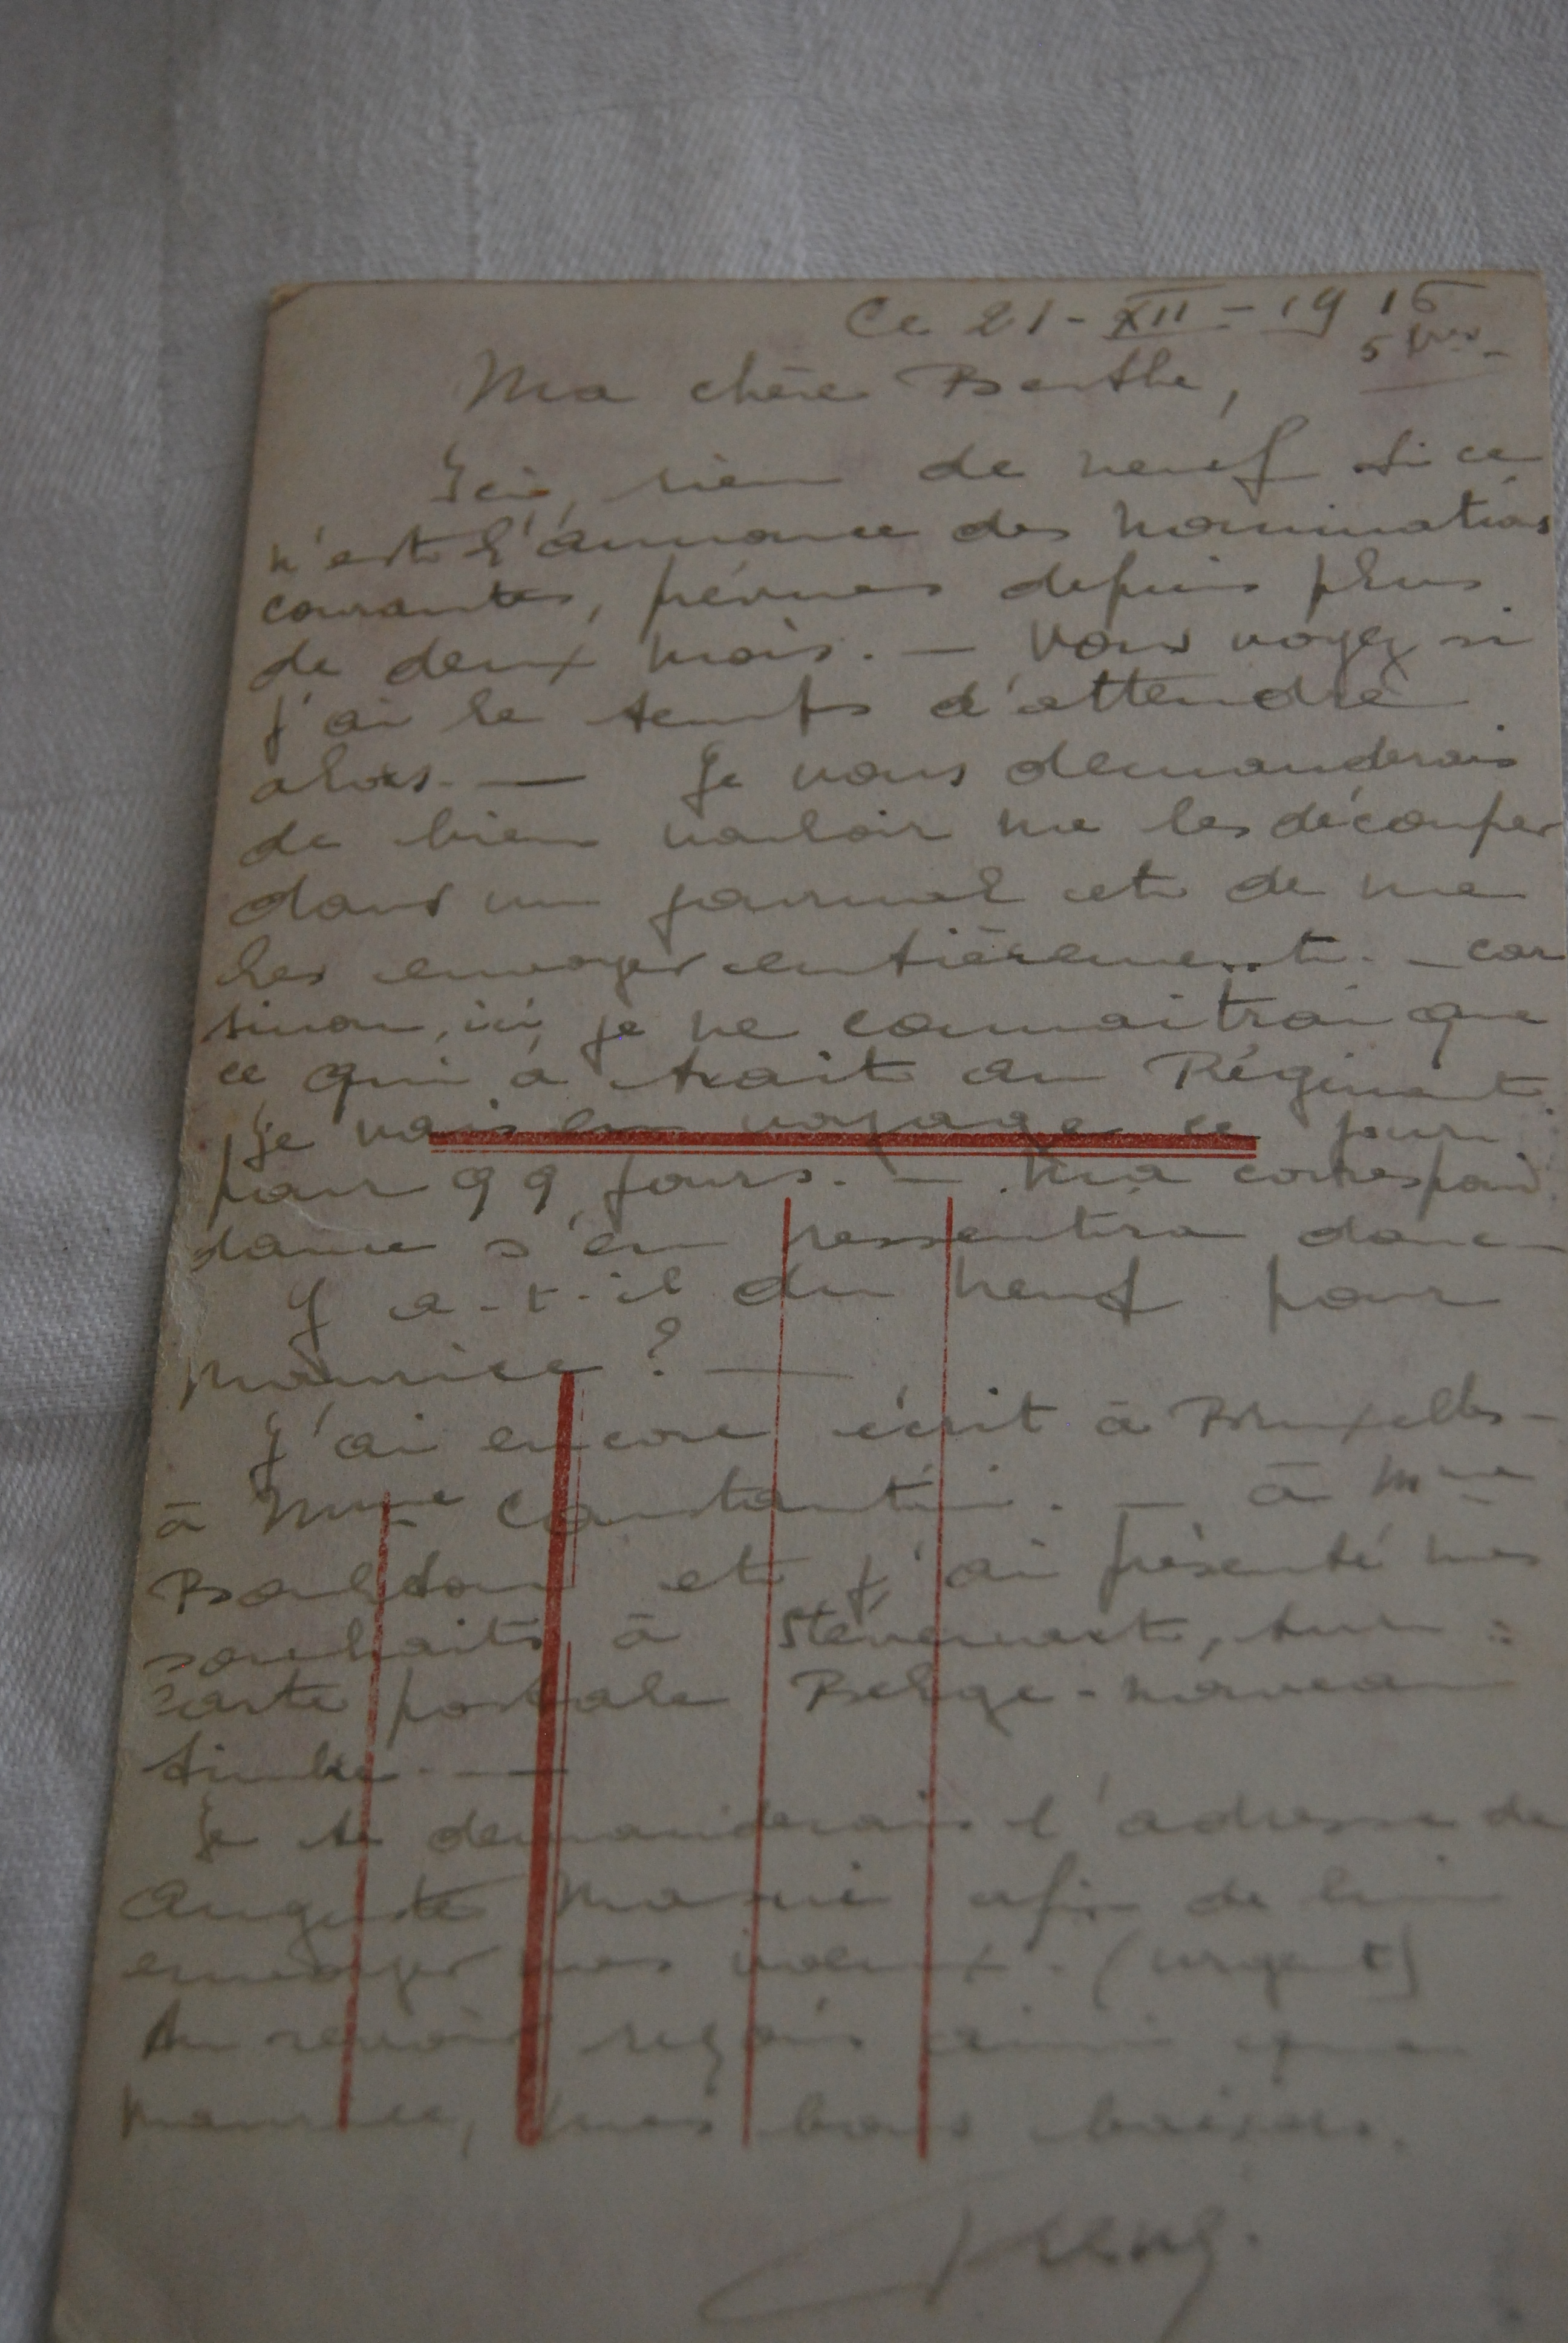 Ce 21-XII-1916
5 hres -
Ma chère Berthe,
Ici, rien de neuf si ce
n'est l'annonce des nominations
courantes, prévues depuis plus
de deux mois. — Vous voyez si
j'ai le temps d'attendre
alors. — Je vous demanderais
de bien vouloir me les découper
dans un journal et de me
les envoyer entièrement. - car
sinon, ici, je ne connaitrai que
ce qui a trait au Régiment
Je vais en voyage ce jour
pour 99 jours. — Ma correspon
dance s'en ressentira donc -
Y a-t-il du neuf pour
Maurice ? —
J'ai encore écrit à Bruxelles -
à Mme Constantin. — à Mme
et j'ai présenté mes
souhaits à Stévenart, sur :
carte postale Belge - nouveau
timbre. —
Je te demanderais l'adresse de
Auguste Marie afin de lui
envoyer mes voeux. (urgent)
Au revoir reçois ainsi que
Maurice, mes bons baisers.